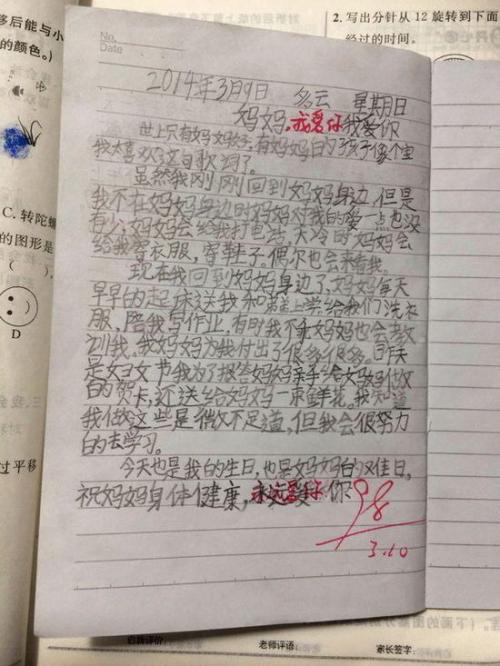 移后能与小
的颜色。)
2. 写出分针从 12 旋转到下面
经过的时间。
No.
Date
2014年3月9日 多云 星期日
妈妈,我爱你我爱你
世上只有妈妈好,有妈妈的孩子像个宝
我太喜欢这首歌词了。
虽然我刚刚回到妈妈身边,但是
我不在妈妈身边时妈妈对我的爱一点也没
有少,妈妈会给我打电话,天冷时妈妈会
给我寄衣服,寄鞋子,偶尔也会来看我。
现在我回到妈妈身边了,妈妈每天
早早的起床送我和弟弟上学,给我们洗衣
服,陪我写作业,有时我不乖妈妈也会教
训我。我妈妈为我付出了很多很多。昨天
是妇女节我为了报答妈妈亲手给妈妈做
的贺卡,还送给妈妈一束鲜花。我知道
我做这些是微不足道,但我会很努力
的去学习。
今天也是我的生日,也是妈妈的
祝妈妈身体健康,永远爱你
98
3.10
C. 转陀螺
的图形是
( ),
D
过平移
(下面的图
自我评价:
老师评语:
家长签字: